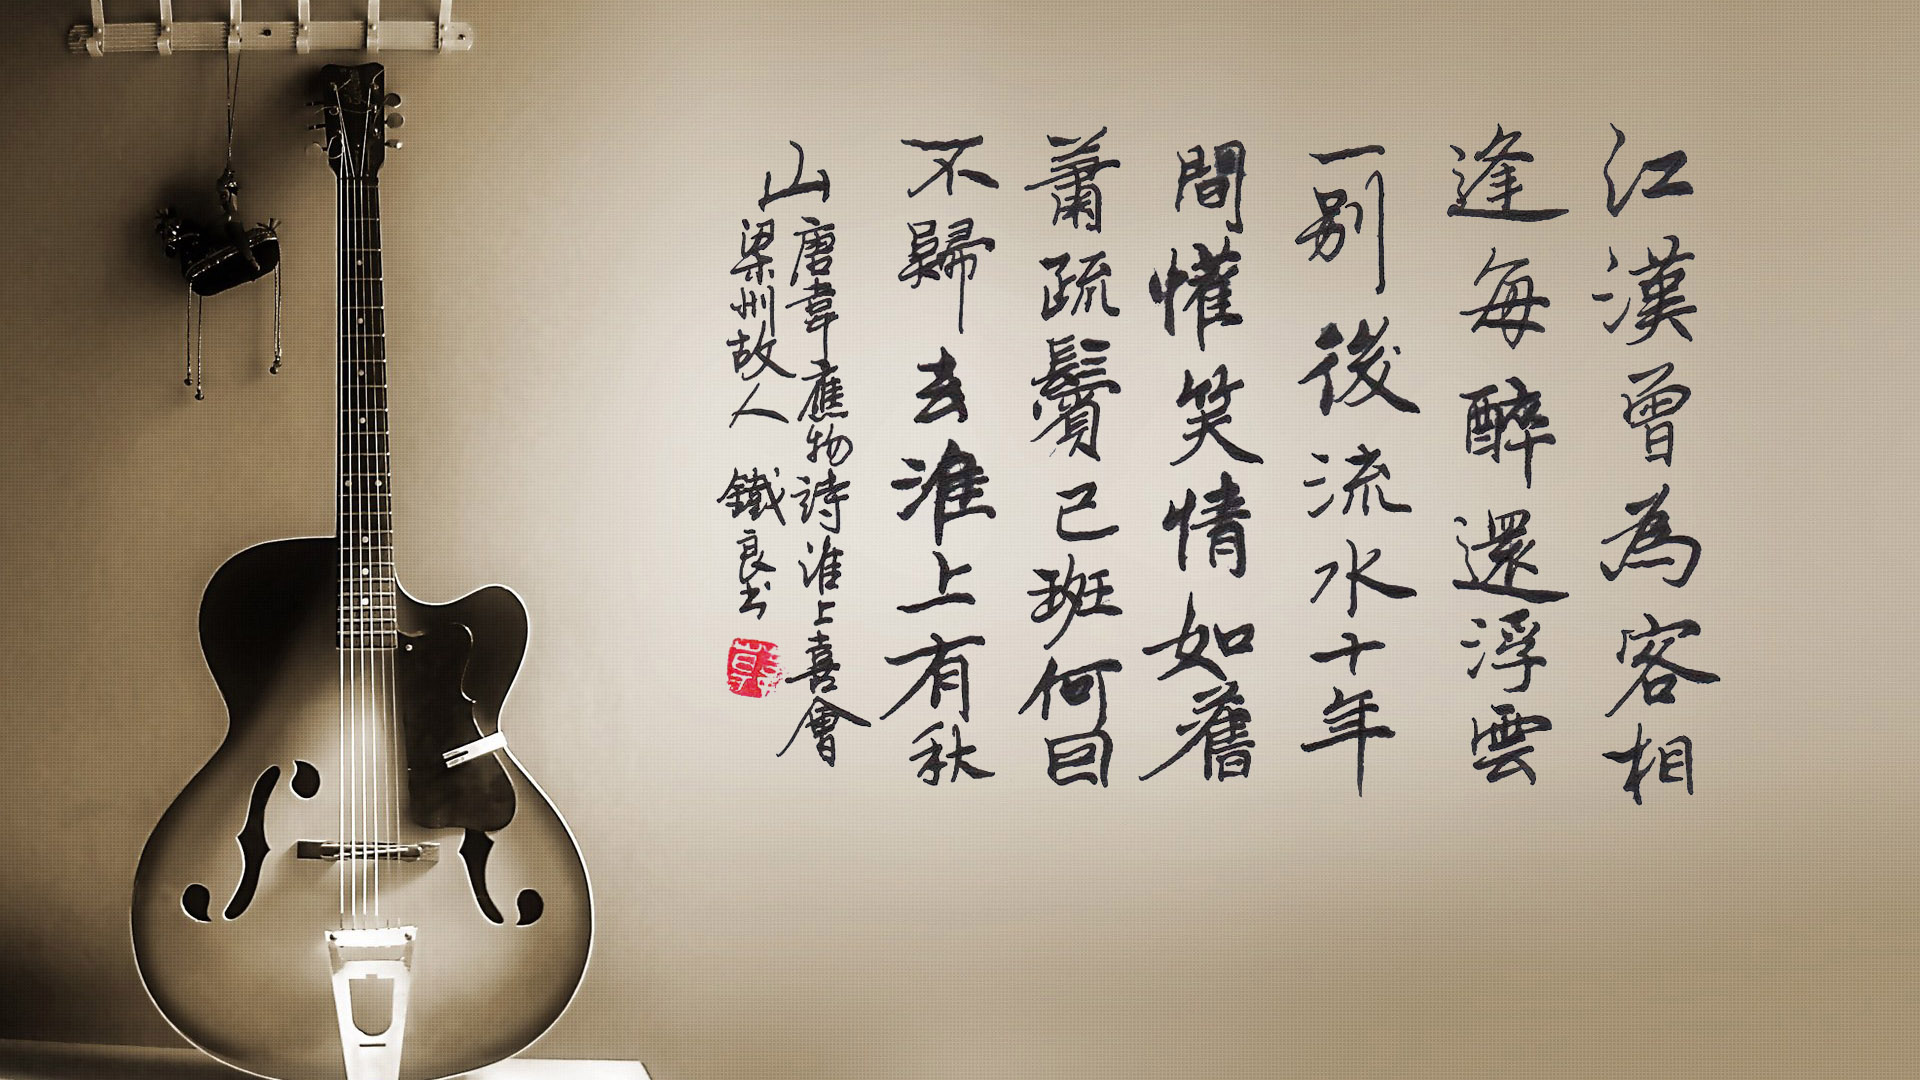 江漢曾為客相
逢每醉還浮雲
一別後流水十年
間懽笑情如舊
蕭疏鬢已斑何因
不歸去淮上有秋
山
唐韋應物詩淮上喜會
梁州故人 鐵良书